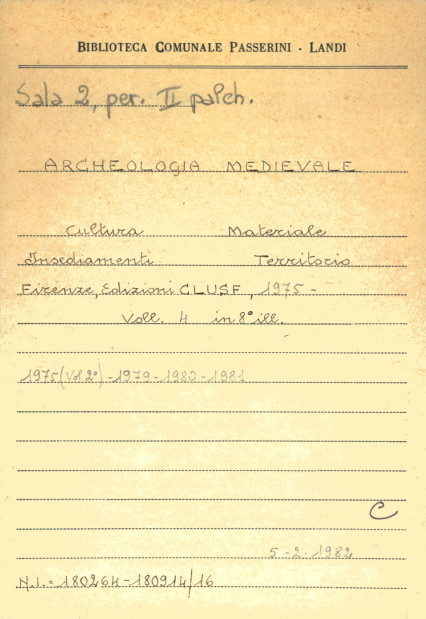 BIBLIOTECA COMUNALE PASSERINI - LANDI
Sala 2, per. II palch.
ARCHEOLOGIA MEDIEVALE
Cultura Materiale
Insediamenti Territorio
Firenze, Edizioni CLUSF, 1975-
Voll. 4 in 8° ill.
1975(Vol 2°)-1979-1980-1981
C
5-2-1982
N.I.= 180264-180914/16